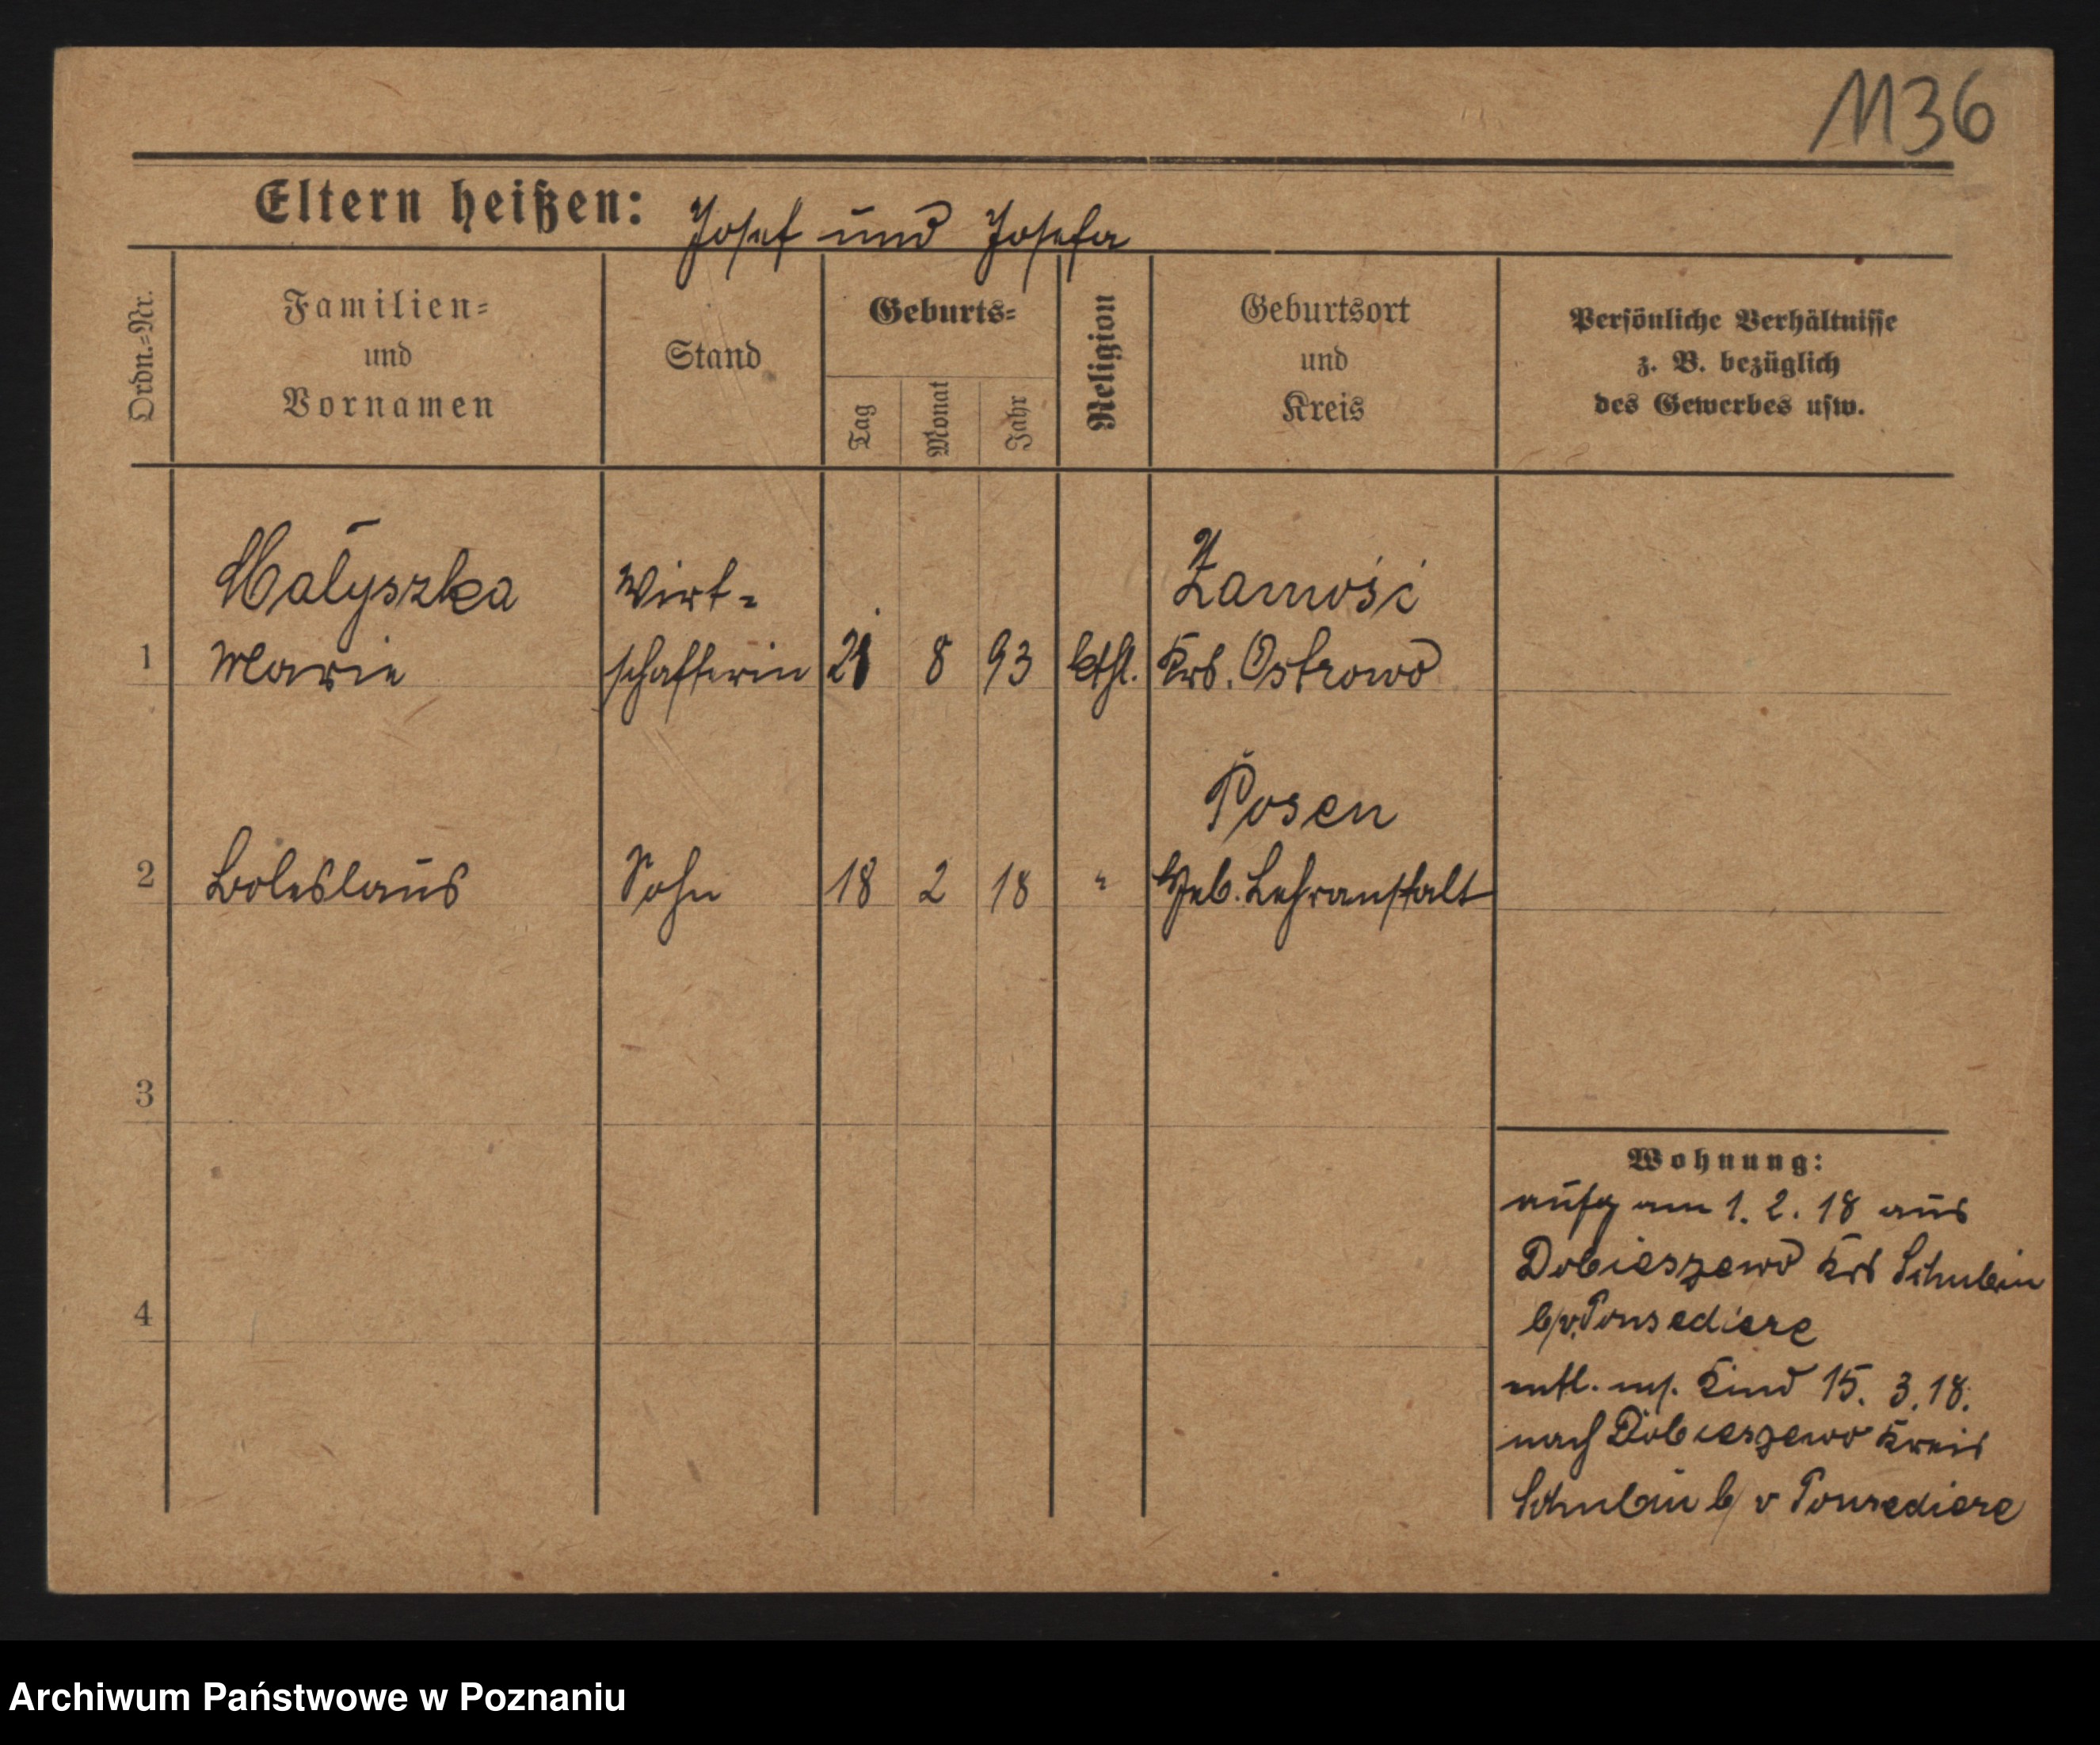 1136
Eltern heißen: Josef und Josefa
Ordn.-Nr.
Familien-
und
Vornamen
Stand
Geburts-
Tag
Monat
Jahr
Religion
Geburtsort
und
Kreis
Persönliche Verhältnisse
z. B. bezüglich
des Gewerbes usw.
Małyszka
Wirt-
Zamość
1 Marie schafterin 21 8 93 kthl. Krs. Ostrowo
Posen
2 Boleslaus Sohn 18 2 18 " Heb. Lehranstalt
3
4
Wohnung:
aufg am 1. 2. 18 aus
Dobieszewo Krs Schubin
b/v. Ponsediere
entl. m/. Kind 15. 3. 18.
nach Dobieszewo Kreis
Schubin b/ v Ponsediere
Archiwum Państwowe w Poznaniu